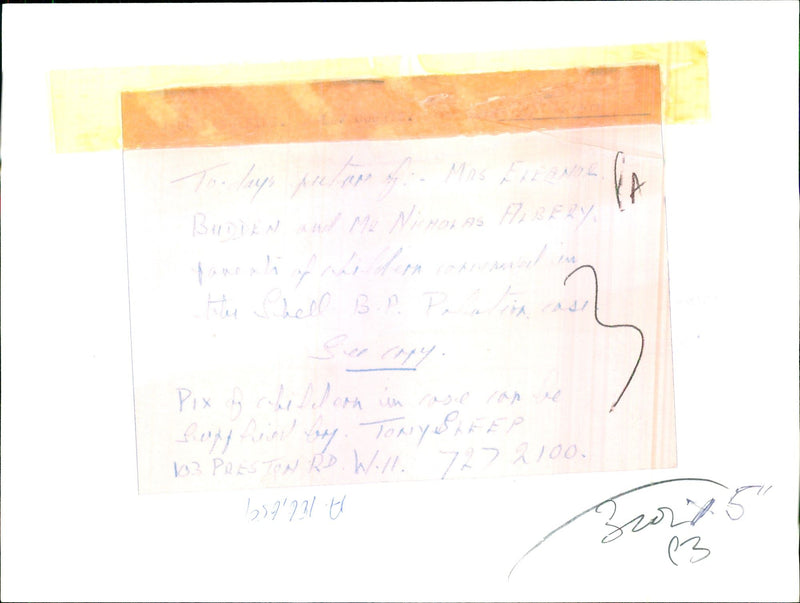 To-days picture of:- Mrs ELEANOR
BUDDEN and Mr NICHOLAS ALBERY.
parents of children concerned in
the Shell B.P. Polution case
See copy.
Pix of children in case can be
supplied by. TONY SLEEP
103 PRESTON RD. W.11. 727 2100.
PA
3
5"
P3